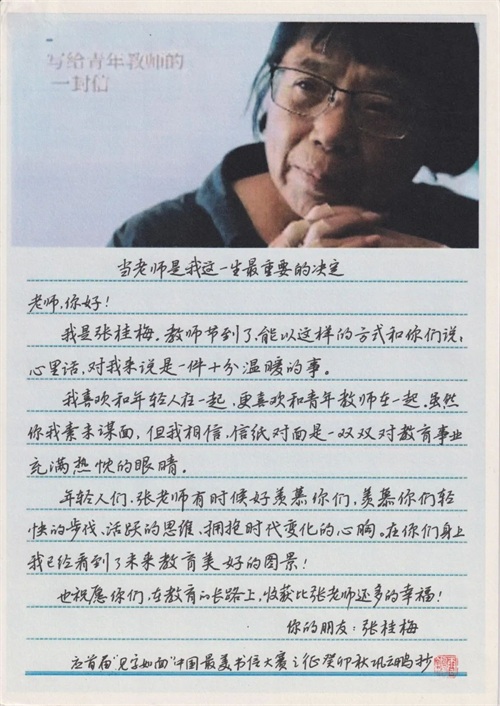 写给青年教师的
一封信
当老师是我这一生最重要的决定
老师，你好！
我是张桂梅。教师节到了，能以这样的方式和你们说，
心里话，对我来说是一件十分温暖的事。
我喜欢和年轻人在一起，更喜欢和青年教师在一起，虽然
你我素未谋面，但我相信，信纸对面是一双双对教育事业
充满热忱的眼睛。
年轻人们，张老师有时候好羡慕你们，羡慕你们轻
快的步伐、活跃的思维、拥抱时代变化的心胸。在你们身上
我已经看到了未来教育美好的图景！
也祝愿你们，在教育的长路上，收获比张老师还多的幸福！
你的朋友：张桂梅
应首届“见字如面”中国最美书信大赛之征癸卯秋巩云鹏抄